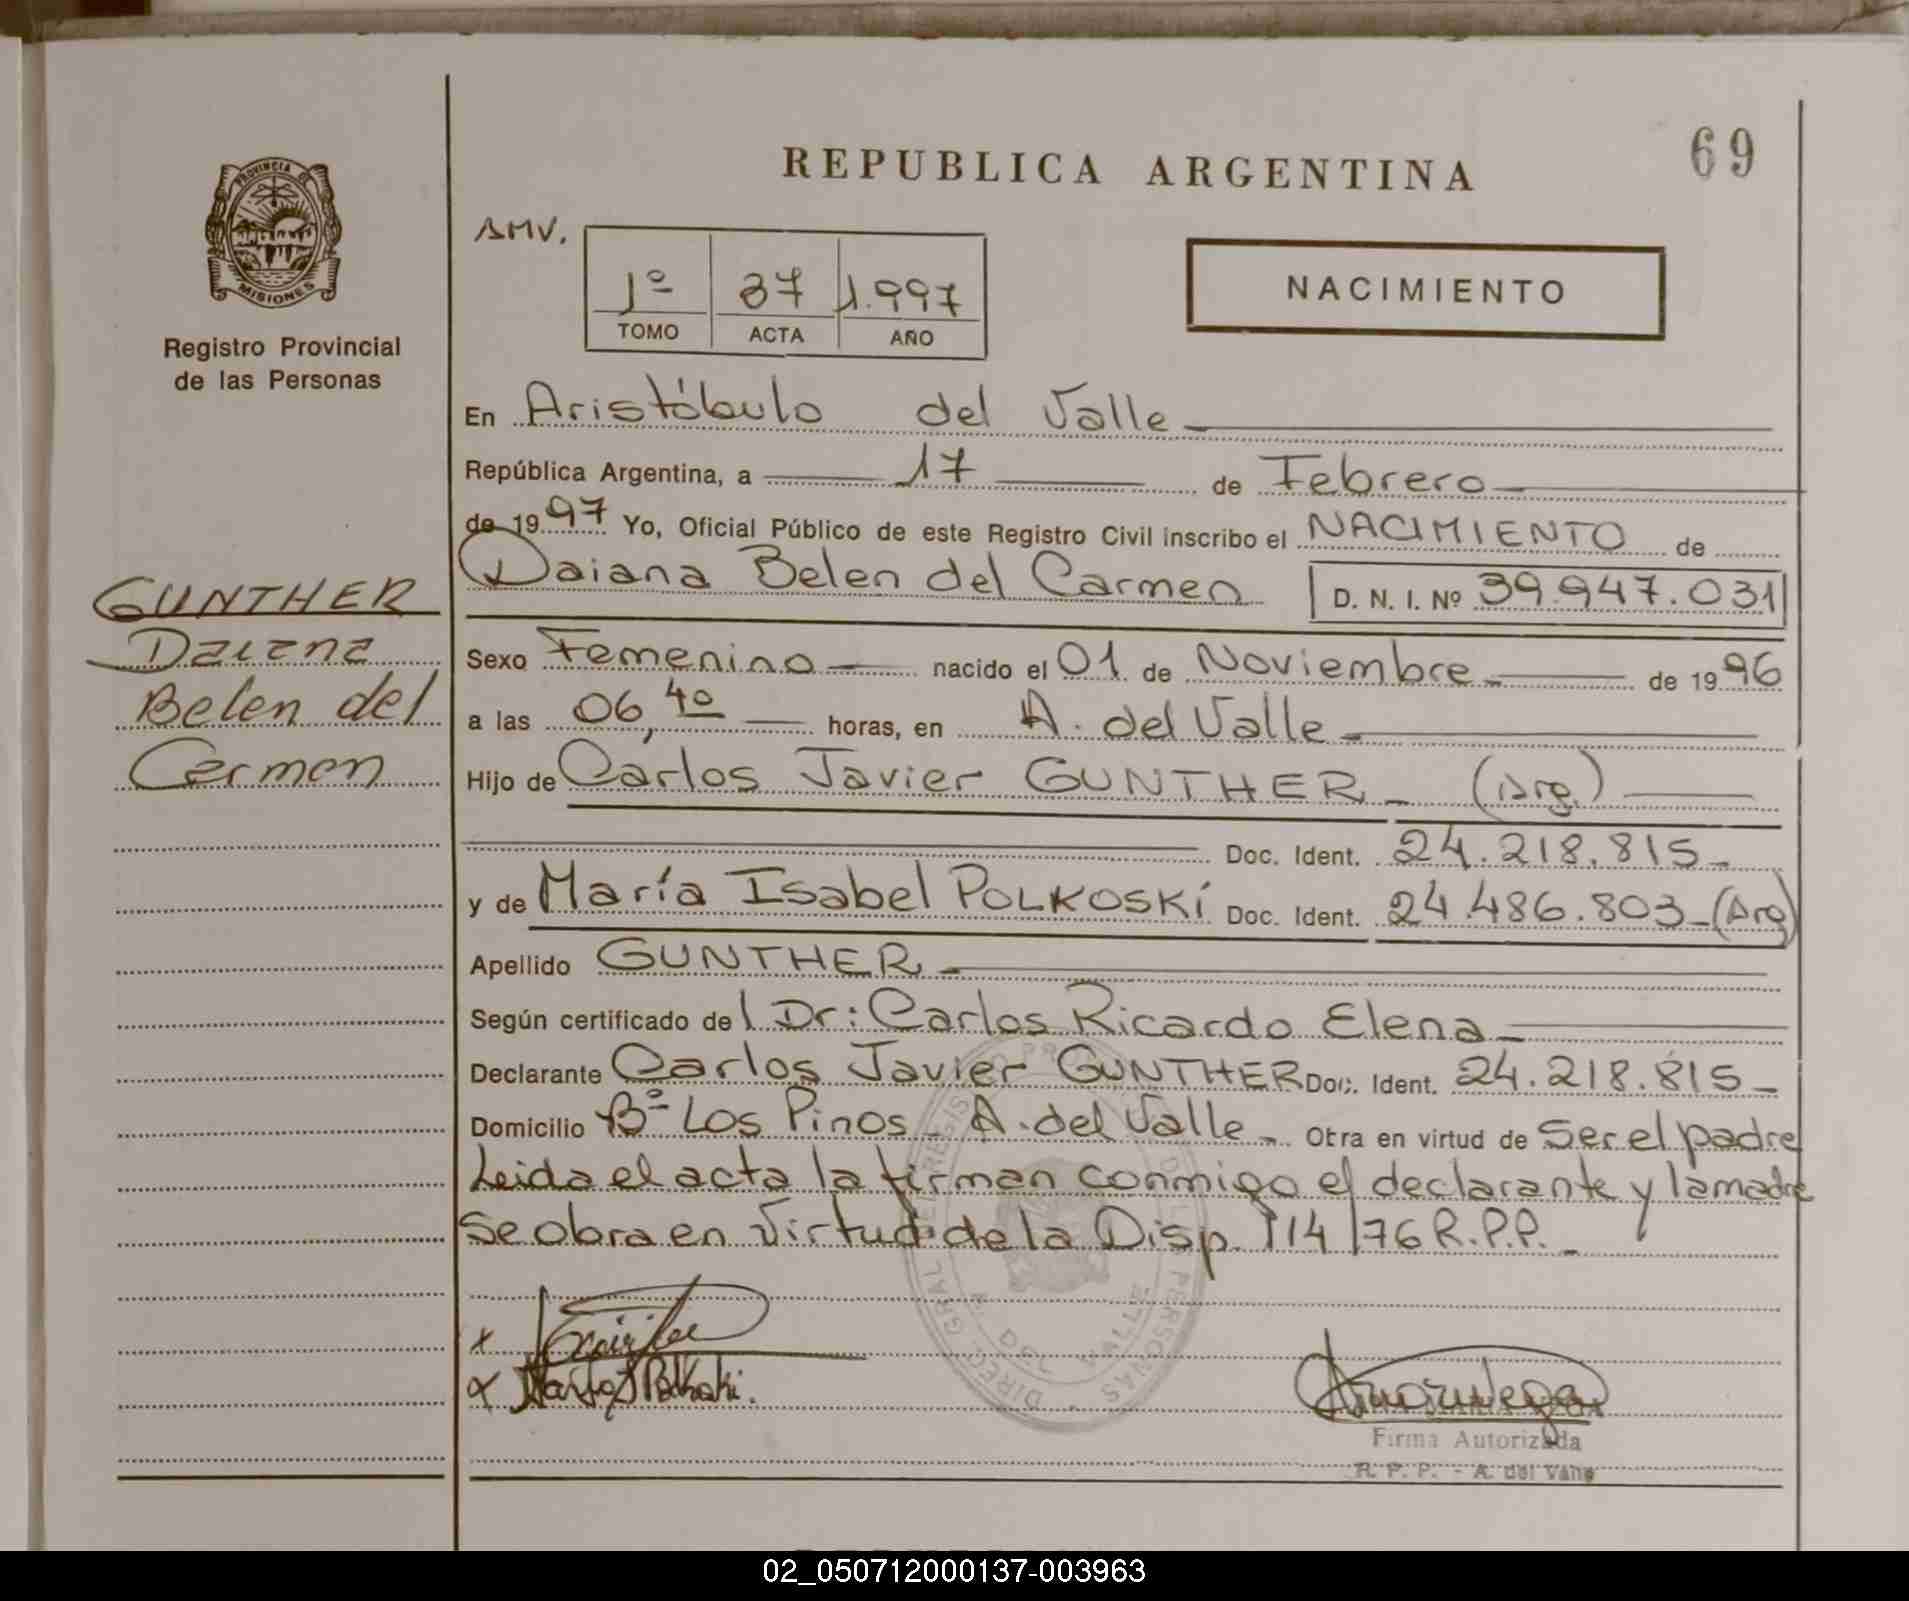 69
REPUBLICA ARGENTINA
PROVINCIA DE
MISIONES
Registro Provincial
de las Personas
AMV.
1º 37 1.997
TOMO ACTA AÑO
NACIMIENTO
En Aristóbulo del Valle
República Argentina, a 17 de Febrero
de 1997 Yo, Oficial Público de este Registro Civil inscribo el NACIMIENTO de
Daiana Belen del Carmen D. N. I. Nº 39.947.031
GUNTHER
Daiana
Belen del
Carmen
Sexo Femenino nacido el 01 de Noviembre de 1996
a las 06,40 horas, en A. del Valle
Hijo de Carlos Javier GUNTHER (Arg.)
Doc. Ident. 24.218.815
y de María Isabel POLKOSKI Doc. Ident. 24.486.803 (Arg)
Apellido GUNTHER
Según certificado del Dr: Carlos Ricardo Elena
Declarante Carlos Javier GUNTHER Doc. Ident. 24.218.815
Domicilio Bº Los Pinos A. del Valle Obra en virtud de Ser el padre
Leida el acta la firman conmigo el declarante y la madre
Se obra en Virtud de la Disp. 114/76 R.P.P.
x
x
Firma Autorizada
R. P. P. - A. del Valle
02_050712000137-003963